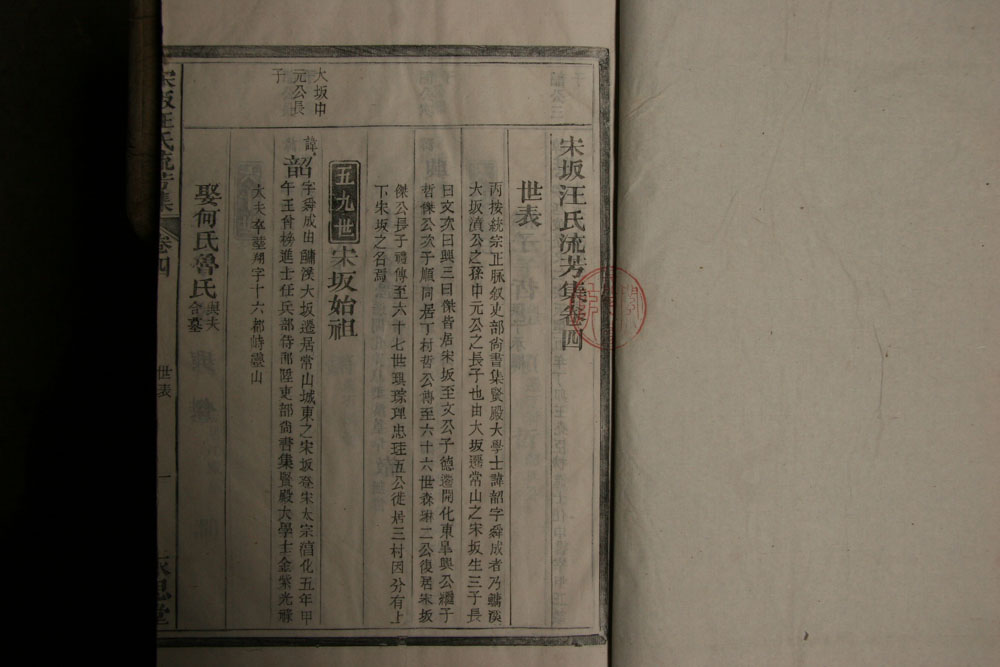 宋坂汪氏流芳集卷四
世表
丙按統宗正脉叙吏部尙書集賢殿大學士諱韶字舜成者乃鱅溪
大坂漬公之孫中元公之長子也由大坂遷常山之宋坂生三子長
曰文次曰興三曰傑皆居宋坂至文公子德遷開化東臯興公繼子
哲傑公次子順同居丁村哲公傳至六十六世森
二公復居宋坂
傑公長子禮傳至六十七世琪琮理忠珪五公徙居三村因分有上
下宋坂之名焉
大坂中
元公長
子
五九世 宋坂始祖
諱韶字舜成由鱅溪大坂遷居常山城東之宋坂登宋太宗淳化五年甲
午王曾榜進士任兵部侍郎陞吏部尙書集賢殿大學士金紫光祿
大夫卒塟翔字十六都峙靈山
娶何氏魯氏與夫合墓
宋坂汪氏流芳集 卷四 世表 一